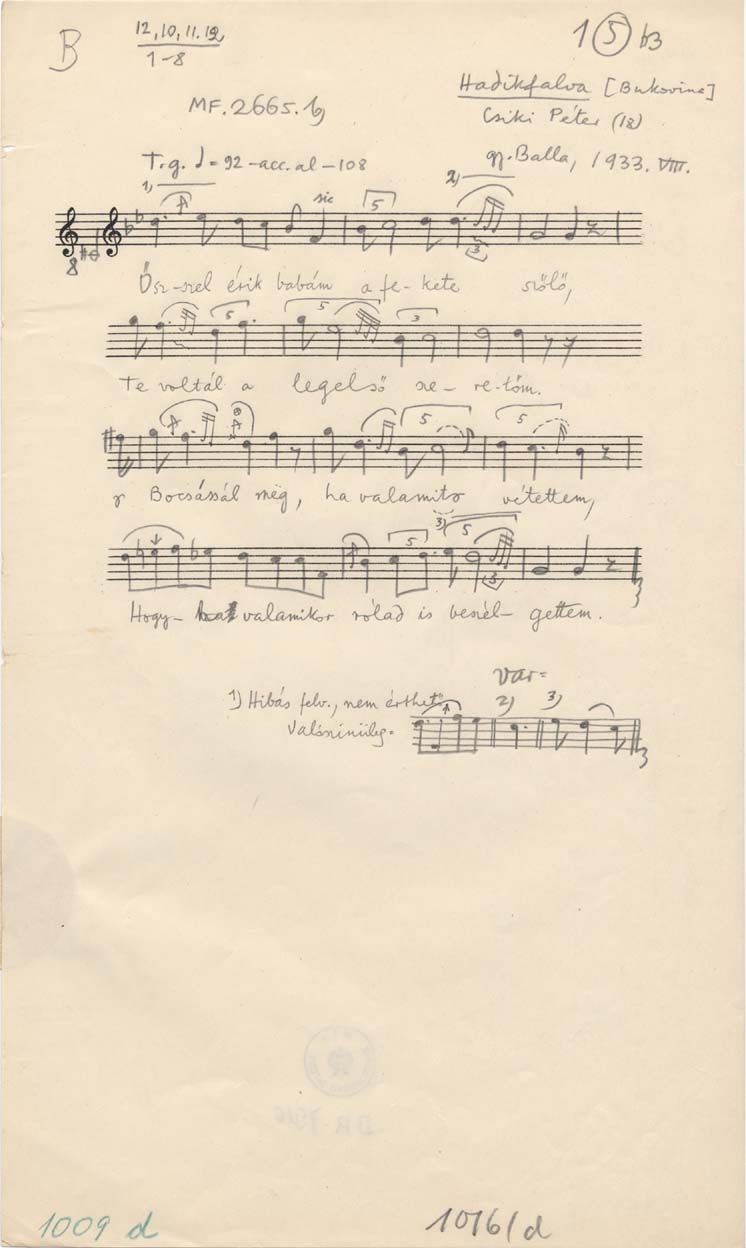 B
12, 10, 11. 12
1-8
1 5 b3
MF. 2665. b)
Hadikfalva [Bukovina]
Csiki Péter (18)
gy. Balla, 1933. VIII.
T.g. ♩=92 -acc. al -108
1)
2)
sic
5
3
8
Ősz-szel érik babám a fe-kete szőlő,
5
5
3
Te voltál a legelső sze-re-tőm.
5
5
Bocsássál még, ha valamit vétettem,
3)
5
5
3
Hogy- valamikor rólad is beszél-gettem.
var=
1) Hibás felv., nem érthető
2) 3)
Valószinüleg=
1009 d
1016/d